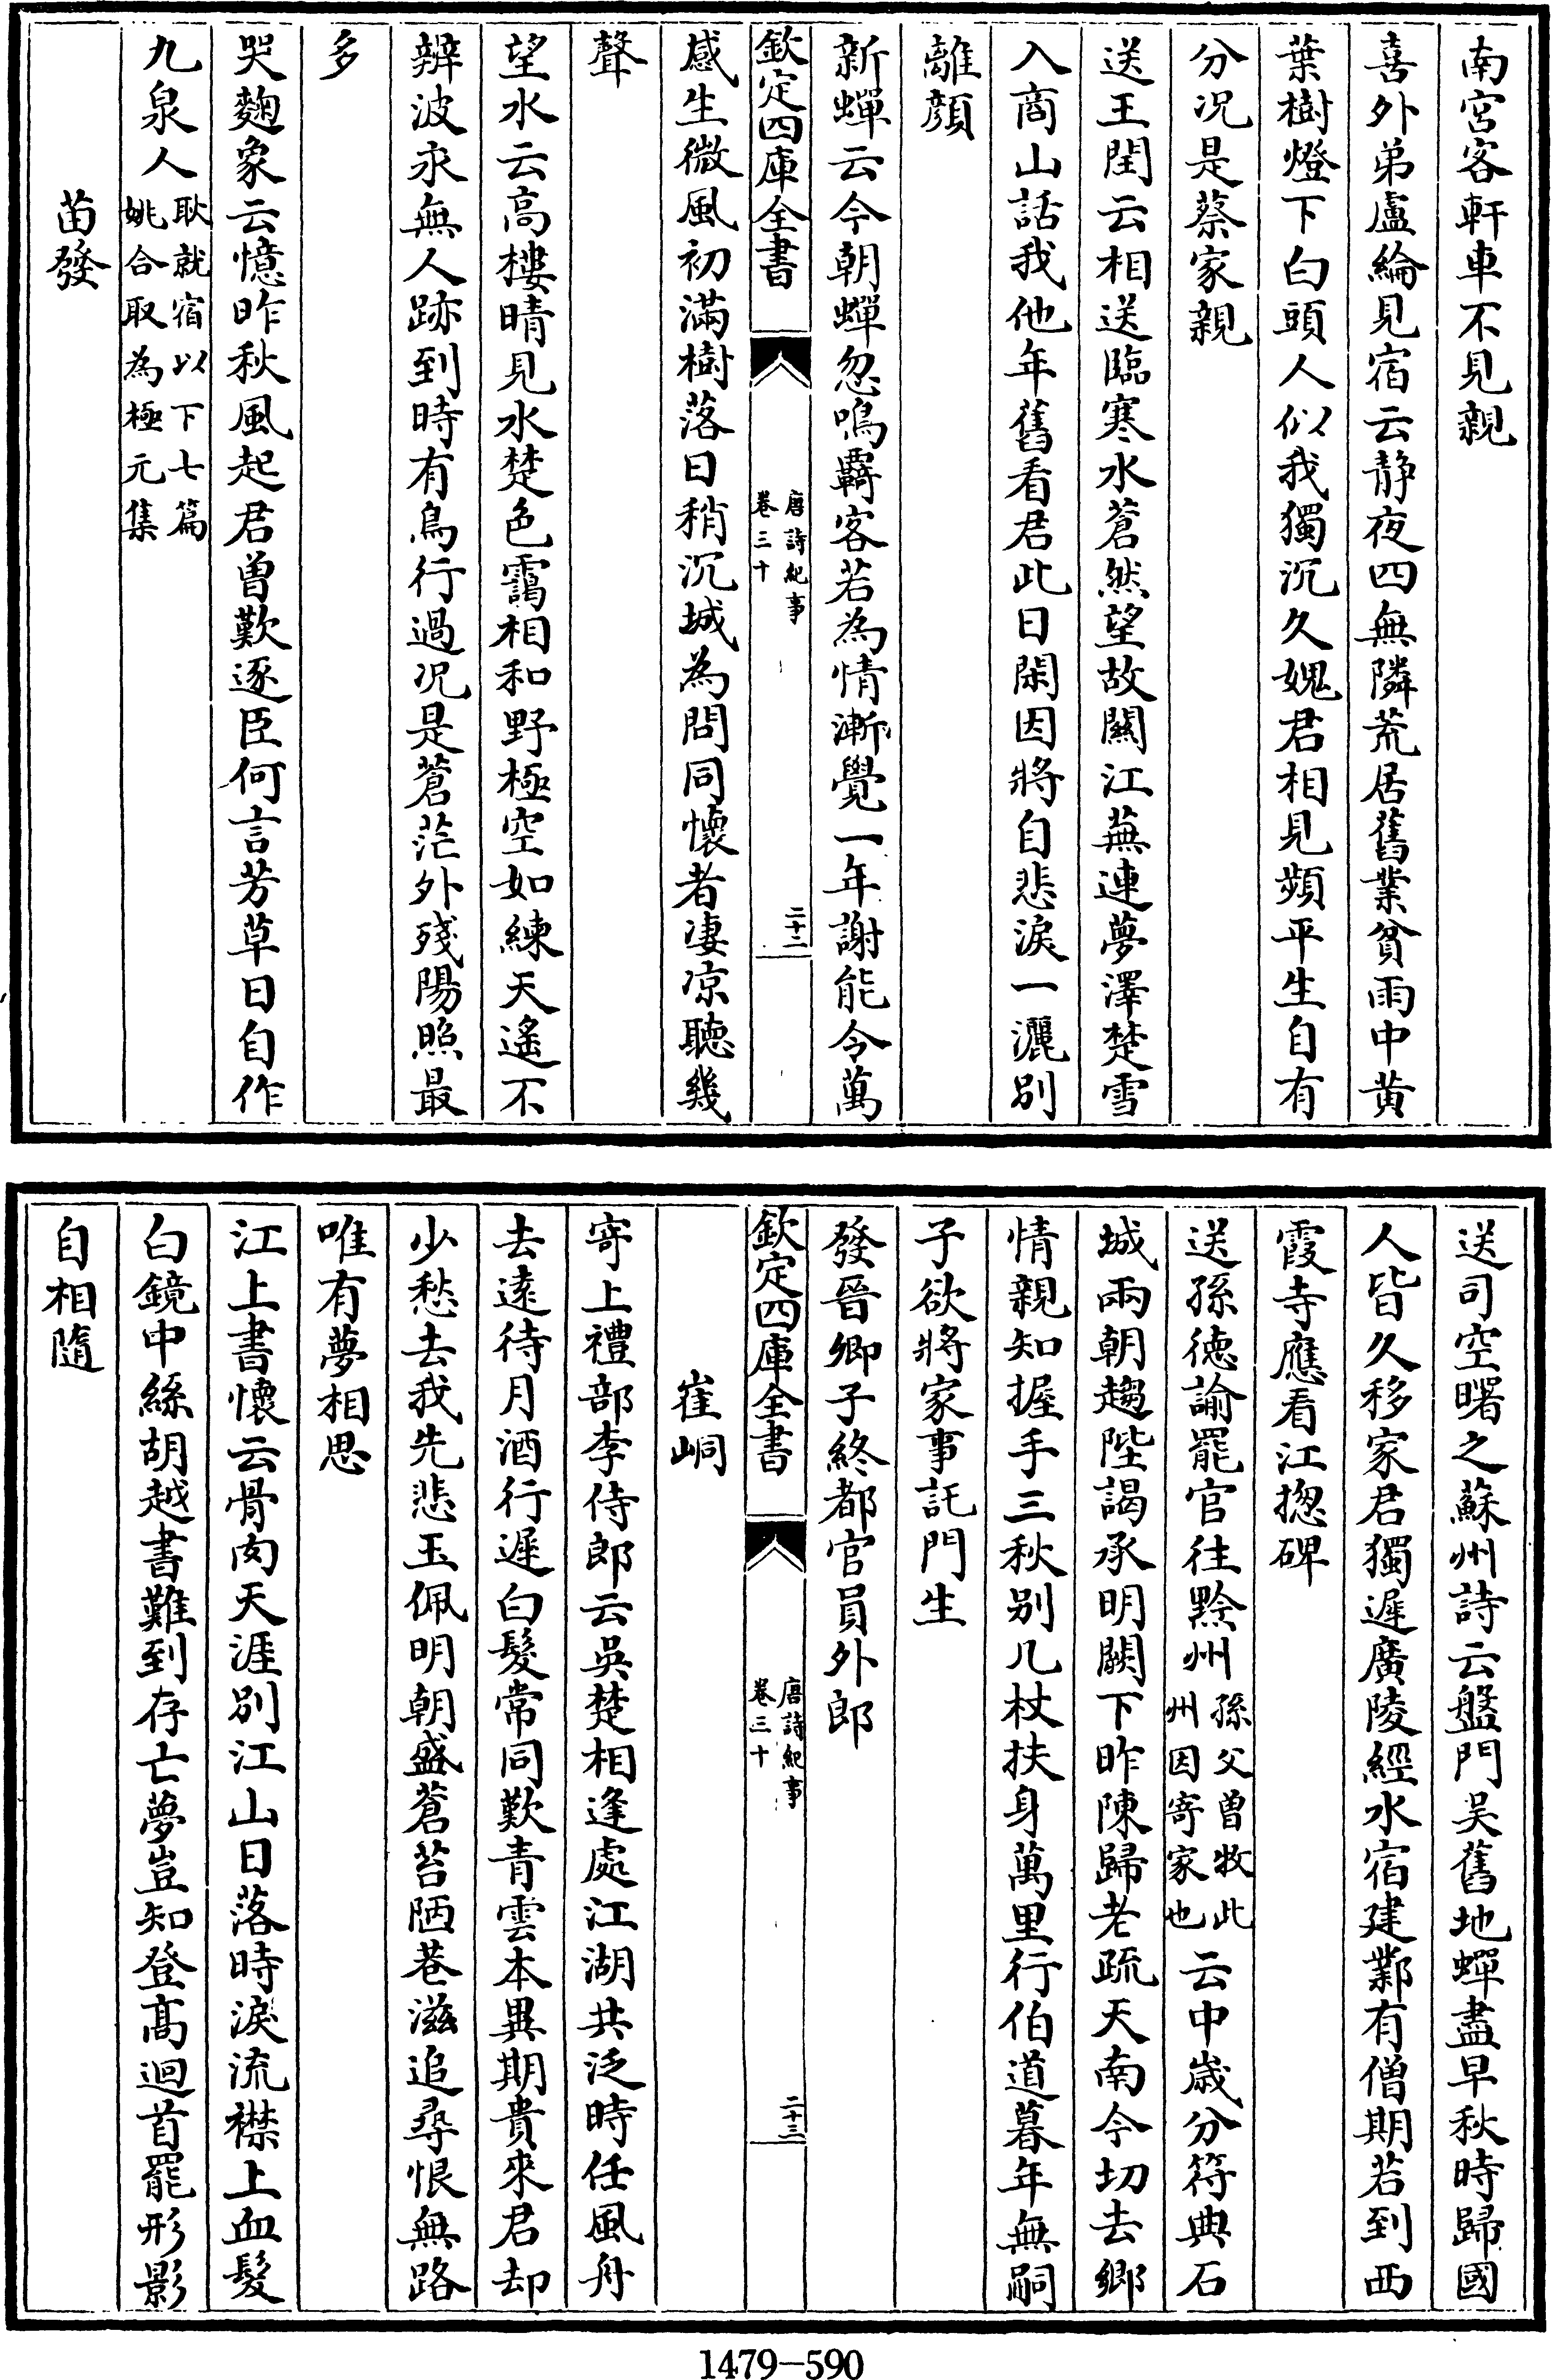 南宮客軒車不見親
喜外弟盧綸見宿云静夜四無隣荒居舊業貧雨中黄
葉樹燈下白頭人似我獨沉久媿君相見頻平生自有
分况是蔡家親
送王閏云相送臨寒水蒼然望故關江蕪連夢澤楚雪
入商山話我他年舊看君此日閑因將自悲淚一灑别
離顔
新蟬云今朝蟬忽鳴覊客若為情漸覺一年謝能令萬
欽定四庫全書
唐詩紀事
卷三十
二十二
感生微風初滿樹落日稍沉城為問同懷者凄凉聽幾
聲
望水云高樓晴見水楚色靄相和野極空如練天遙不
辨波永無人跡到時有鳥行過况是蒼茫外殘陽照最
多
哭麴象云憶昨秋風起君曾歎逐臣何言芳草日自作
九泉人
耿就宿以下七篇
姚合取為極元集
苗發
送司空曙之蘇州詩云盤門吴舊地蟬盡早秋時歸國
人皆久移家君獨遲廣陵經水宿建鄴有僧期若到西
霞寺應看江揔碑
送孫德諭罷官往黔州
孫父曾牧此
州因寄家也
云中歲分符典石
城兩朝趨陛謁承明闕下昨陳歸老疏天南今切去鄉
情親知握手三秋别几杖扶身萬里行伯道暮年無嗣
子欲將家事託門生
發晉卿子終都官員外郎
欽定四庫全書
唐詩紀事
卷三十
二十三
崔峒
寄上禮部李侍郎云吳楚相逢處江湖共泛時任風舟
去遠待月酒行遲白髮常同歎青雲本異期貴來君却
少愁去我先悲玉佩明朝盛蒼苔陋巷滋追尋恨無路
唯有夢相思
江上書懷云骨肉天涯别江山日落時淚流襟上血髮
白鏡中絲胡越書難到存亡夢豈知登髙迴首罷形影
自相隨
1479-590